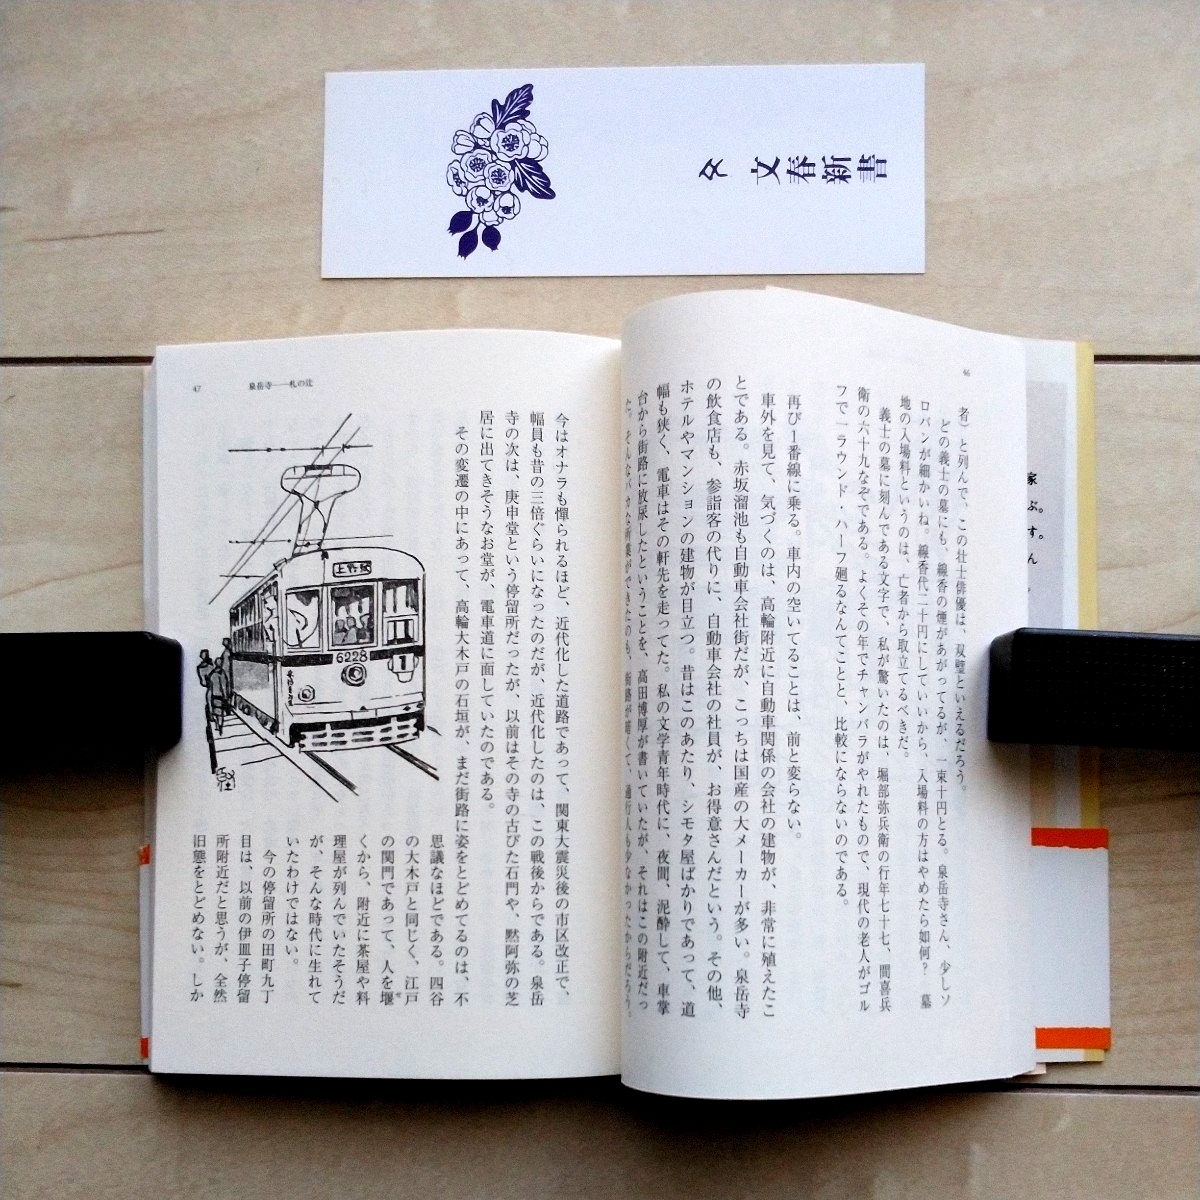 文春新書
46
者）と列んで、この壮士俳優は、双璧といえるだろう。
どの義士の墓にも、線香の煙があがってるが、一束十円とる。泉岳寺さん、少しソ
ロバンが細かいね。線香代二十円にしていいから、入場料の方はやめたら如何？　墓
地の入場料というのは、亡者から取立てるべきだ。
義士の墓に刻んである文字で、私が驚いたのは、堀部弥兵衛の行年七十七、間喜兵
衛の六十九なぞである。よくその年でチャンバラがやれたもので、現代の老人がゴル
フで一ラウンド・ハーフ廻るなんてことと、比較にならないのである。
再び1番線に乗る。車内の空いてることは、前と変らない。
車外を見て、気づくのは、高輪附近に自動車関係の会社の建物が、非常に殖えたこ
とである。赤坂溜池も自動車会社街だが、こっちは国産の大メーカーが多い。泉岳寺
の飲食店も、参詣客の代りに、自動車会社の社員が、お得意さんだという。その他、
ホテルやマンションの建物が目立つ。昔はこのあたり、シモタ屋ばかりであって、道
幅も狭く、電車はその軒先を走ってた。私の文学青年時代に、夜間、泥酔して、車掌
台から街路に放尿したということを、高田博厚が書いていたが、それはこの附近だっ
た。そんなバカな所業ができたのも、街路が暗くて、通行人も少なかったからだろう。
家
ぶ。
す。
ん
47
泉岳寺──札の辻
今はオナラも憚られるほど、近代化した道路であって、関東大震災後の市区改正で、
幅員も昔の三倍ぐらいになったのだが、近代化したのは、この戦後からである。泉岳
寺の次は、庚申堂という停留所だったが、以前はその寺の古びた石門や、黙阿弥の芝
居に出てきそうなお堂が、電車道に面していたのである。
その変遷の中にあって、高輪大木戸の石垣が、まだ街路に姿をとどめてるのは、不
思議なほどである。四谷
の大木戸と同じく、江戸
の関門であって、人を堰
くから、附近に茶屋や料
理屋が列んでいたそうだ
が、そんな時代に生れて
いたわけではない。
今の停留所の田町九丁
目は、以前の伊皿子停留
所附近だと思うが、全然
旧態をとどめない。しか
上野駅
6228
1